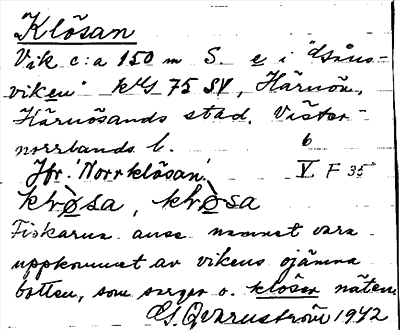 Klösan
Vik c:a 150 m S. e i "Gåns-
viken" kbl 75 SV, Härnön,
Härnösands stad. Väster-
norrlands l. b
Jfr 'Norrklösan'. V F 35
klø̀sa, klø̀sa
Fiskarna anse namnet vara
uppkommet av vikens ojämna
botten, som sarger o. klösen näten
G. Qvarnström 1942